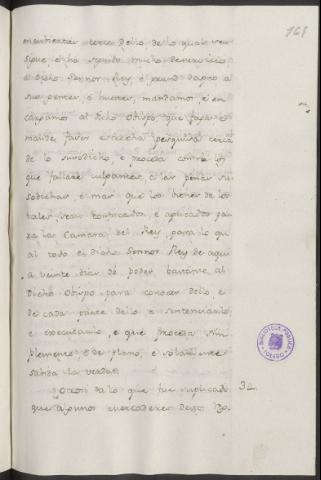 161
mantienen cerca dello de lo qual veo
sigue é ha seguido mucho deservicio
á dicho Sennor Rey, é grand dapno á
sus gentes, é mandamos, é en
cargamos al dicho Obispo, que faga, é
mande facer estrecha pesquisa cerca
de lo susodicho, é proceda contra los
que fallare culpantes, á las penas su
sodichas, é mas que los bienes de los
tales sean confiscados, é aplicados pa
ra la Camara del Rey, para lo qu
al todo el dicho Sennor Rey de aqui
á veinte dias dé poder bastante al
dicho Obispo para conoscer dello, é
de cada parte dello é sentenciarlo
é executarlo, é que proceda sim
plemente é de plano, é solamente
sabida la verdad.
Otrosi á lo que fue suplicado 32
que algunos mercaderes destos
BIBLIOTECA PUBLICA
TOLEDO